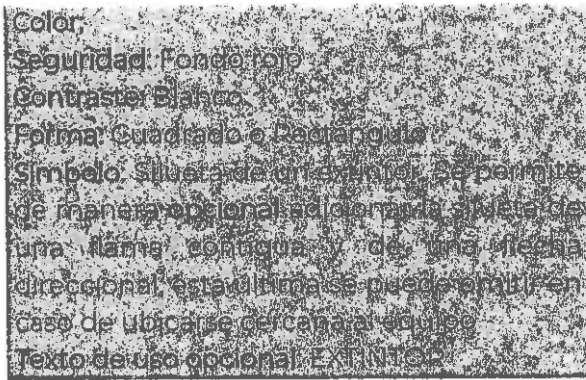 Color;
Seguridad: Fondo rojo
Contraste: Blanco
Forma: Cuadrado o Rectángulo
Símbolo: Silueta de un extintor. Se permite
de manera opcional adicionar la silueta de
una flama contigua y de una flecha
direccional, esta última se puede omitir en
caso de ubicarse cercana al equipo
Texto de uso opcional: EXTINTOR